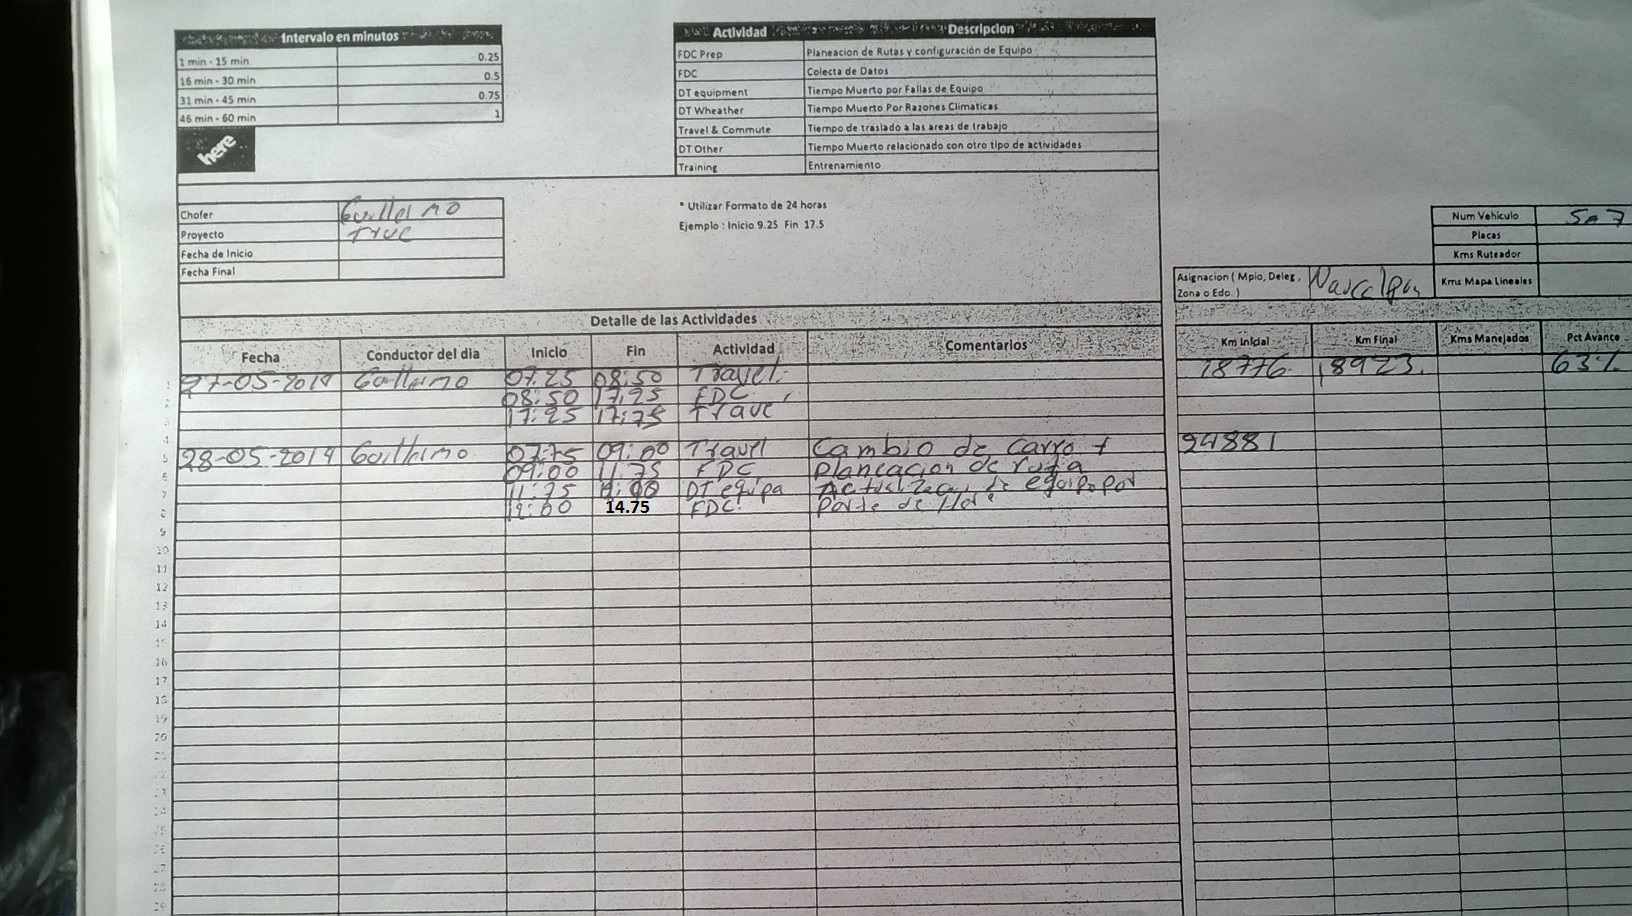 Intervalo en minutos
1 min - 15 min 0.25
16 min - 30 min 0.5
31 min - 45 min 0.75
46 min - 60 min 1
here
Actividad Descripcion
FDC Prep Planeacion de Rutas y configuración de Equipo
FDC Colecta de Datos
DT equipment Tiempo Muerto por Fallas de Equipo
DT Wheather Tiempo Muerto Por Razones Climaticas
Travel & Commute Tiempo de traslado a las areas de trabajo
DT Other Tiempo Muerto relacionado con otro tipo de actividades
Training Entrenamiento
Chofer Guillermo
Proyecto True
Fecha de Inicio
Fecha Final
* Utilizar Formato de 24 horas
Ejemplo : Inicio 9.25 Fin 17.5
Num Vehiculo
Placas
Kms Ruteador
Kms Mapa Lineales
Asignacion ( Mpio, Deleg,
Zona o Edo. )
Detalle de las Actividades
Fecha Conductor del dia Inicio Fin Actividad Comentarios Km Inicial Km Final Kms Manejados Pct Avance
1 27-05-2014 Guillermo 07.25 08:50 Travel 18776 18923. 63%
2 08:50 17.25 FDC
3 17:25 17:75 Trave
4
5 28-05-2014 Guillermo 07:75 09:00 Travel Cambio de Carro + 24881
6 09:00 11.75 FDC planeacion de ruta
7 11:75 DT equipa de equipo por
8 12:00 14.75 FDC parte de
9
10
11
12
13
14
16
17